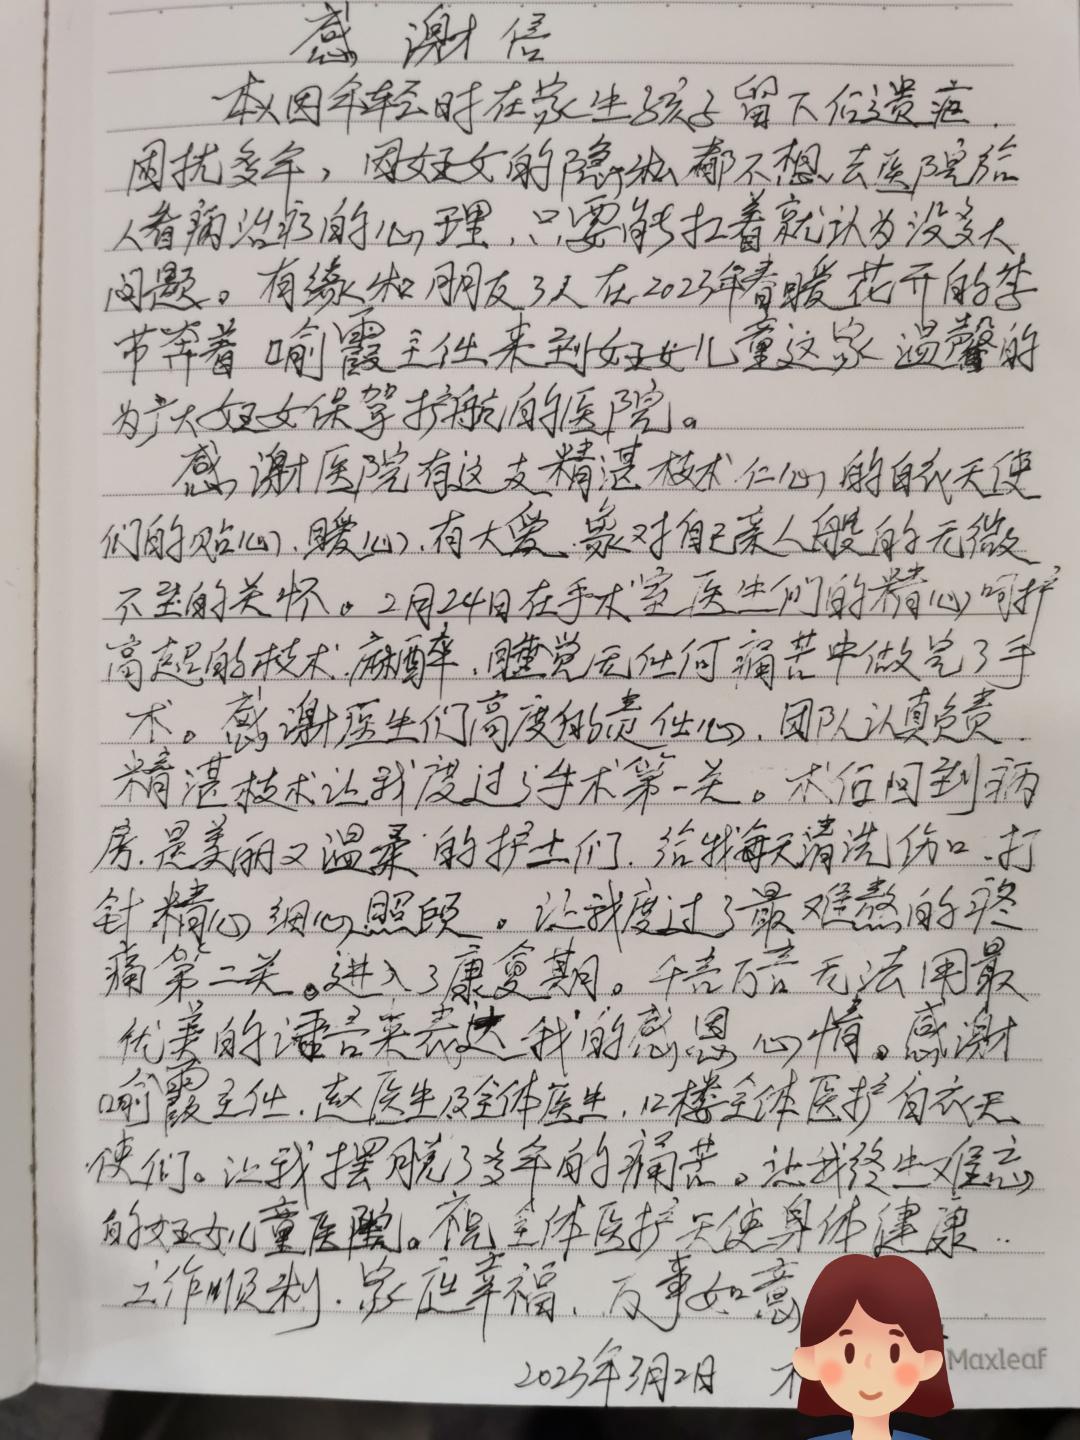 感谢信
本人因年轻时在家生孩子留下后遗症.
困扰多年，因妇女的隐私都不想去医院给
人看病治疗的心理.只要能扛着就认为没多大
问题。有缘和朋友3人在2023年春暖花开的季
节奔着喻霞主任来到妇女儿童这家温馨的
为广大妇女保驾护航的医院。
感谢医院有这支精湛技术仁心的白衣天使
们的贴心.暖心.有大爱.象对自己亲人般的无微
不至的关怀。2月24日在手术室医生们的精心呵护
高超的技术.麻醉.睡觉无任何痛苦中做完了手
术。感谢医生们高度的责任心.团队认真负责.
精湛技术让我度过了手术第一关。术后回到病
房.是美丽又温柔的护士们.给我每天清洗伤口.打
针精心细心照顾。让我度过了最难熬的疼
痛第二关。进入了康复期。千言万言无法用最
优美的语言来表达我的感恩心情。感谢
喻霞主任.赵医生及全体医生.12楼全体医护白衣天
使们。让我摆脱了多年的痛苦。让我终生难忘
的妇女儿童医院。祝全体医护天使身体健康..
工作顺利.家庭幸福.万事如意
2023年3月2日
Maxleaf